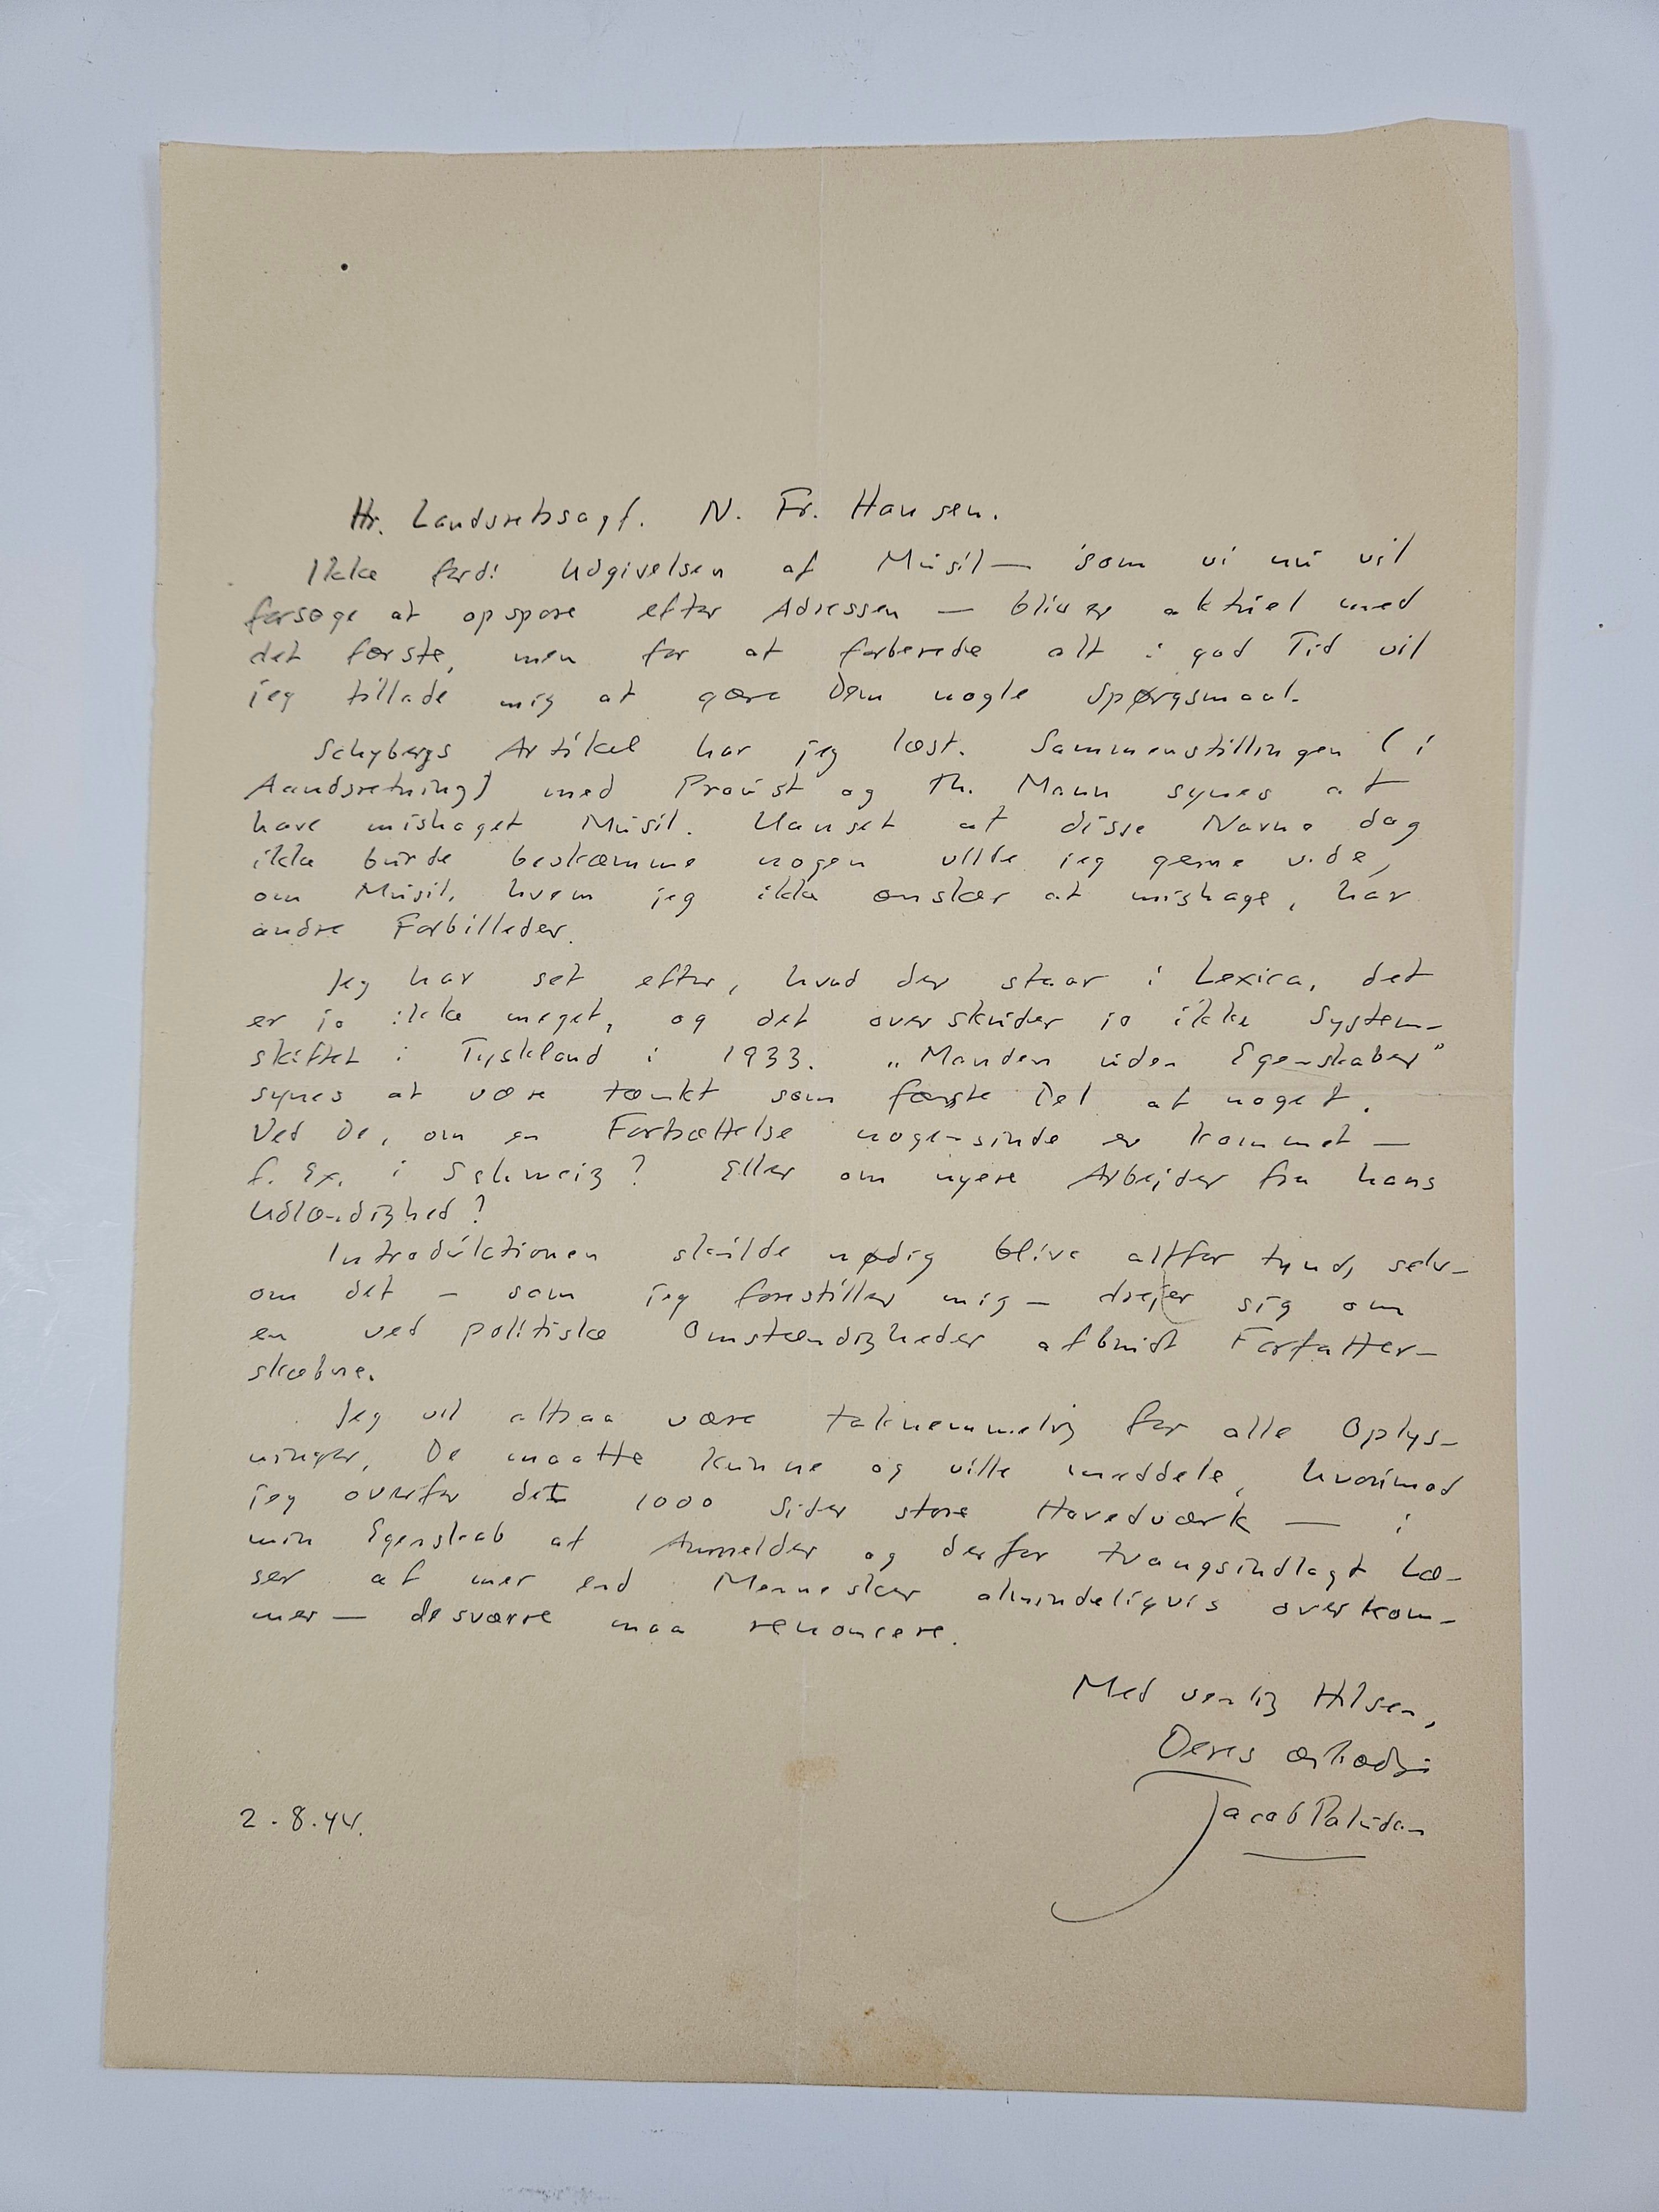 Hr. Landsretssagf. N. Fr. Hansen.
Ikke fordi Udgivelsen af Musil — som vi nu vil
forsøge at opspore efter Adressen — bliver aktuel med
det første, men for at forberede alt i god Tid vil
jeg tillade mig at gøre Dem nogle Spørgsmaal.
Schybergs Artikel har jeg læst. Sammenstillingen (i
Aandsretning) med Proust og Th. Mann synes at
have mishaget Musil. Uanset at disse Navne dog
ikke burde beskæmme nogen vilde jeg gerne vide,
om Musil, hvem jeg ikke ønsker at mishage, har
andre Forbilleder.
Jeg har set efter, hvad der staar i Lexica, det
er jo ikke meget, og det overskrider jo ikke System-
skiftet i Tyskland i 1933. „Manden uden Egenskaber"
synes at være tænkt som første Del af noget.
Ved De, om en Fortsættelse nogensinde er kommet —
f. Ex. i Schweiz? Eller om nyere Arbejder fra hans
Udlændighed?
Introduktionen skulde nødig blive altfor tynd, selv-
om det — som jeg forestiller mig — drejer sig om
en ved politiske Omstændigheder afbrudt Forfatter-
skæbne.
Jeg vil altsaa være taknemmelig for alle Oplys-
ninger, De maatte kunne og ville meddele, hvorimod
jeg overfor det 1000 Sider store Hovedværk — i
min Egenskab af Anmelder og derfor tvangsindlagt Læ-
ser af mer end Mennesker almindeligvis overkom-
mer — desværre maa renoncere.
Med venlig Hilsen,
Deres ærbødige
Jacob Paludan
2.8.44.